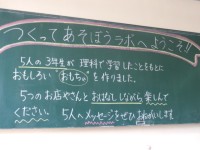 つくってあそぼうラボへようこそ!!
5人の3年生が 理科で学習したことをもとに
おもしろい「おもちゃ」を作りました。
5つのお店やさんとおはなししながら楽しんで
ください。 5人へメッセージをぜひおねがいします